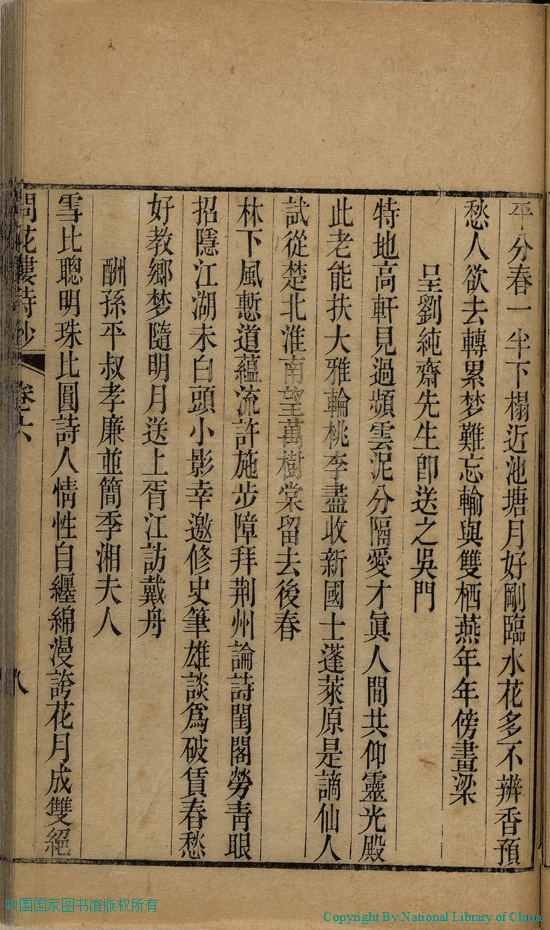 平分春一半下榻近池塘月好剛臨水花多不辨香預
愁人欲去轉累梦難忘輸與雙栖燕年年傍畫梁
呈劉純齋先生卽送之吳門
特地高軒見過頻雲泥分隔愛才眞人間共仰靈光殿
此老能扶大雅輪桃李盡收新國士蓬萊原是謫仙人
試從楚北淮南望萬樹棠留去後春
林下風慙道蘊流許施步障拜荆州論詩閨閣勞青眼
招隱江湖未白頭小影幸邀修史筆雄談爲破賃春愁
好教鄉梦隨明月送上胥江訪戴舟
酬孫平叔孝廉並簡季湘夫人
雪比聰明珠比圓詩人情性自纏綿漫誇花月成雙絕
問花樓詩鈔 卷六 八
中国国家图书馆版权所有
Copyright By National Library of China